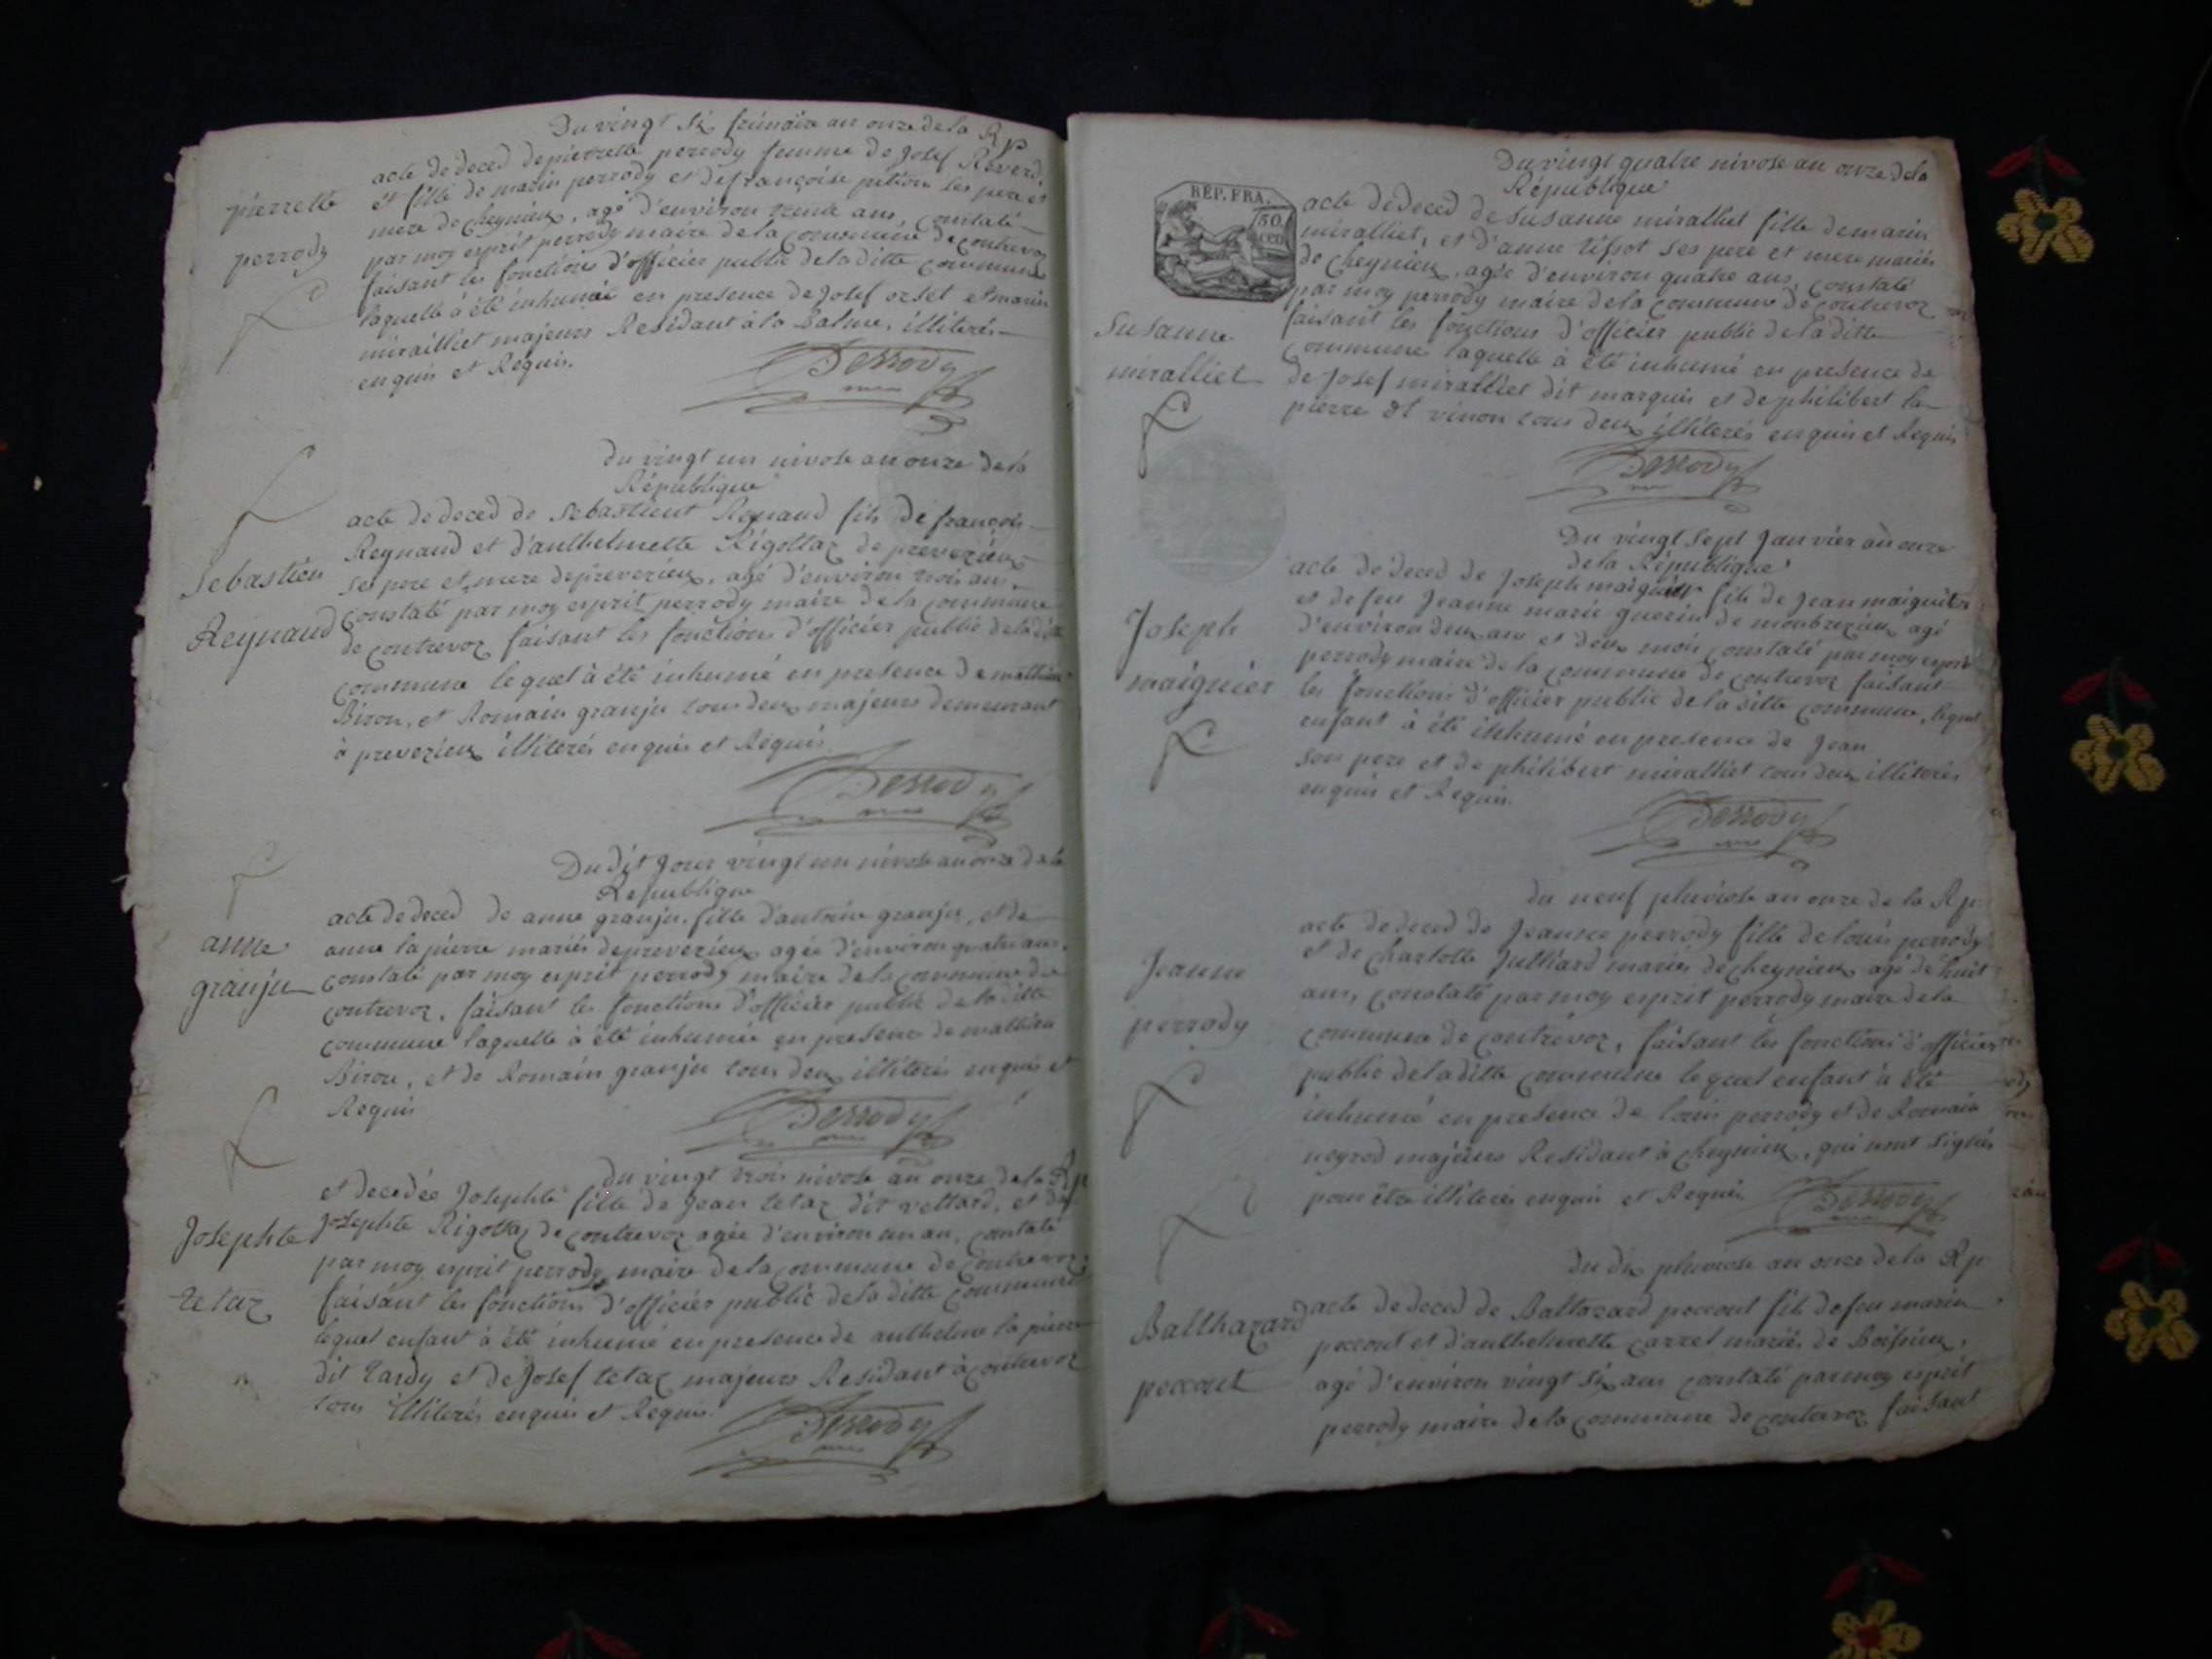 Du vingt six frimaire an onze de la Rp
acte de deced de pierrette perrody femme de Josef Reverd,
et fille de marin perrody et de françoise pition ses pere et
mere de cheynieu, agé d'environ trente ans, constaté
par moy esprit perrody maire de la commune de contrevoz
faisant les fonctions d'officier public de la ditte commune
laquelle à été inhumée en presence de Josef orset et marin
mirailliet majeurs Residant à la Balme, illiterés
enquis et Requis.
pierrette
perrody
Perrody
Du vingt un nivose an onze de la
République
acte de deced de sebastient Reynaud fils de françois
Reynaud et d'anthelmette Rigottaz de preverieux
ses pere et mere de preverieux, agé d'environ trois ans,
constaté par moy esprit perrody maire de la commune
de contrevoz faisant les fonctions d'officier public de la ditte
commune lequel à été inhumé en presence de mathieu
Biron, et Romain granju tous deux majeurs demeurant
à preverieux illiterés enquis et Requis
sebastien
Reynaud
Perrody
Du dit Jour vingt un nivose an onze de la
Republique
acte de deced de anne granju fille d'antoine granju, et de
anne la pierre mariés de preverieux agée d'environ quatre ans,
constaté par moy esprit perrody maire de la commune de
contrevoz, faisant les fonctions d'officier public de la ditte
commune laquelle à été inhumée en presence de mathieu
Biron, et de Romain granju tous deux illiterés enquis et
Requis
anne
granju
Perrody
du vingt trois nivose an onze de la Rp
et decedée Josephte fille de Jean tetaz dit vettard, et de
Josephte Rigottaz de contrevoz agée d'environ un an, constaté
par moy esprit perrody maire de la commune de contrevoz,
faisant les fonctions d'officier public de la ditte commune
lequel enfant à été inhumé en presence de anthelme la pierre
dit tardy et de Josef tetaz majeurs Residant à contrevoz
tous illiterés enquis et Requis.
Josephte
tetaz
Perrody
REP. FRA.
50
cen
Du vingt quatre nivose an onze de la
République
acte de deced de susanne miralliet fille de marin
miralliet, et d'anne tissot ses pere et mere mariés
de cheynieu, agée d'environ quatre ans, constaté
par moy perrody maire de la commune de contrevoz
faisant les fonctions d'officier public de la ditte
commune laquelle à été inhumé en presence de
de Josef miralliet dit marquis et de philibert la
pierre dt vinon tous deux illiterés enquis et Requis
susanne
miralliet
Perrody
Du vingt sept Janvier an onze
de la République
acte de deced de Joseph maignier fils de Jean maignier
et de feu Jeanne marie guerin de monbrezieu agé
d'environ deux ans et deux mois constaté par moy esprit
perrody maire de la commune de contrevoz faisant
les fonctions d'officier public de la ditte commune, lequel
enfant à été inhumé en presence de Jean
son pere et de philibert miralliet tous deux illiterés
enquis et Requis.
Joseph
maignier
Perrody
du neuf pluviose an onze de la Rp
acte de deced de Jeanne perrody fille de louis perrody
et de charlotte Julliard mariés de cheynieu agé de huit
ans, constaté par moy esprit perrody maire de la
commune de contrevoz, faisant les fonctions d'officier
public de la ditte commune lequel enfant à été
inhumé en presence de louis perrody et de Romain
neyrod majeurs Residant à cheynieu, qui nont signés
pour être illiterés enquis et Requis
Jeanne
perrody
Perrody
du dix pluviose an onze de la Rp
acte de deced de Baltazard peccout fils de feu marin
peccout et d'anthelmette carrel mariés de Boissieu,
agé d'environ vingt six ans constaté par moy esprit
perrody maire de la commune de contrevoz faisant
Balthazard
peccout